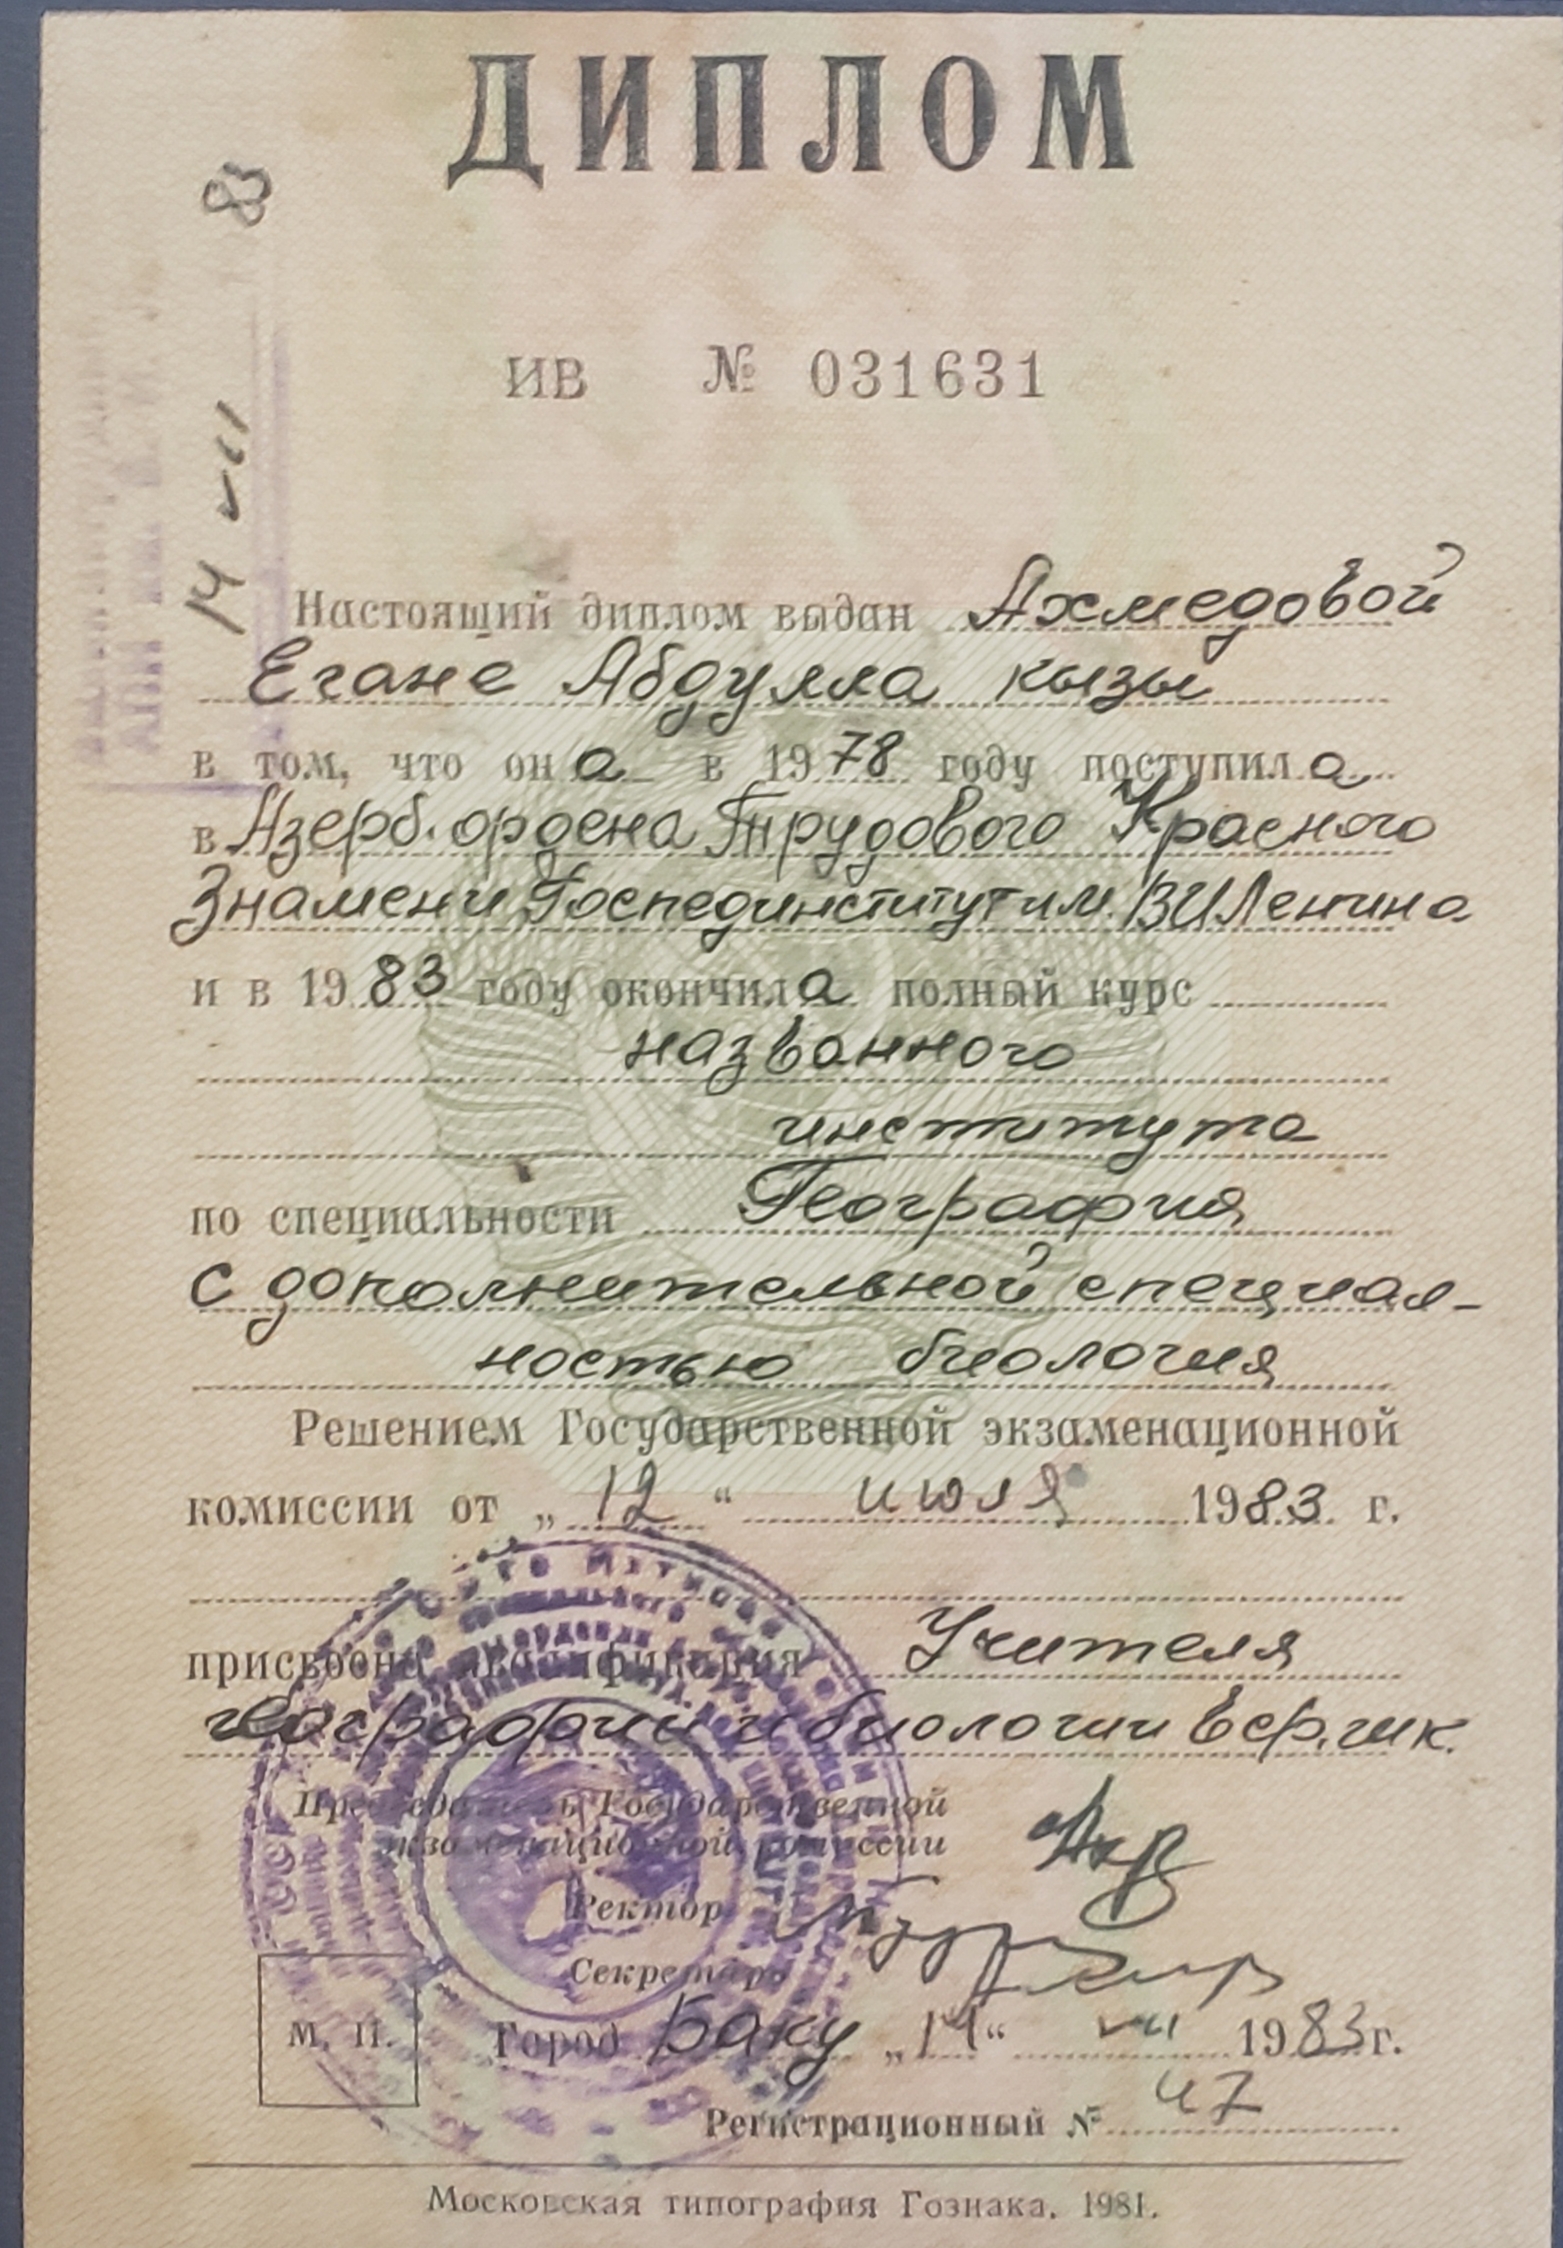 ДИПЛОМ
ИВ № 031631
83
14 VII
Настоящий диплом выдан Ахмедовой
Егане Абдулла кызы
в том, что она в 1978 году поступила
в Азерб. ордена Трудового Красного
Знамени Госпединститут им. В И Ленина
и в 1983 году окончила полный курс
названного
института
по специальности География
с дополнительной специал-
ностью биология
Решением Государственной экзаменационной
комиссии от „12“ июля 1983 г.
присвоена квалификация Учителя
географии и биологии в ср. шк.
Председатель Государственной
экзаменационной комиссии
Ректор
Секретарь
М. П.
Город Баку „14“ VII 1983 г.
Регистрационный № 47
Московская типография Гознака. 1981.